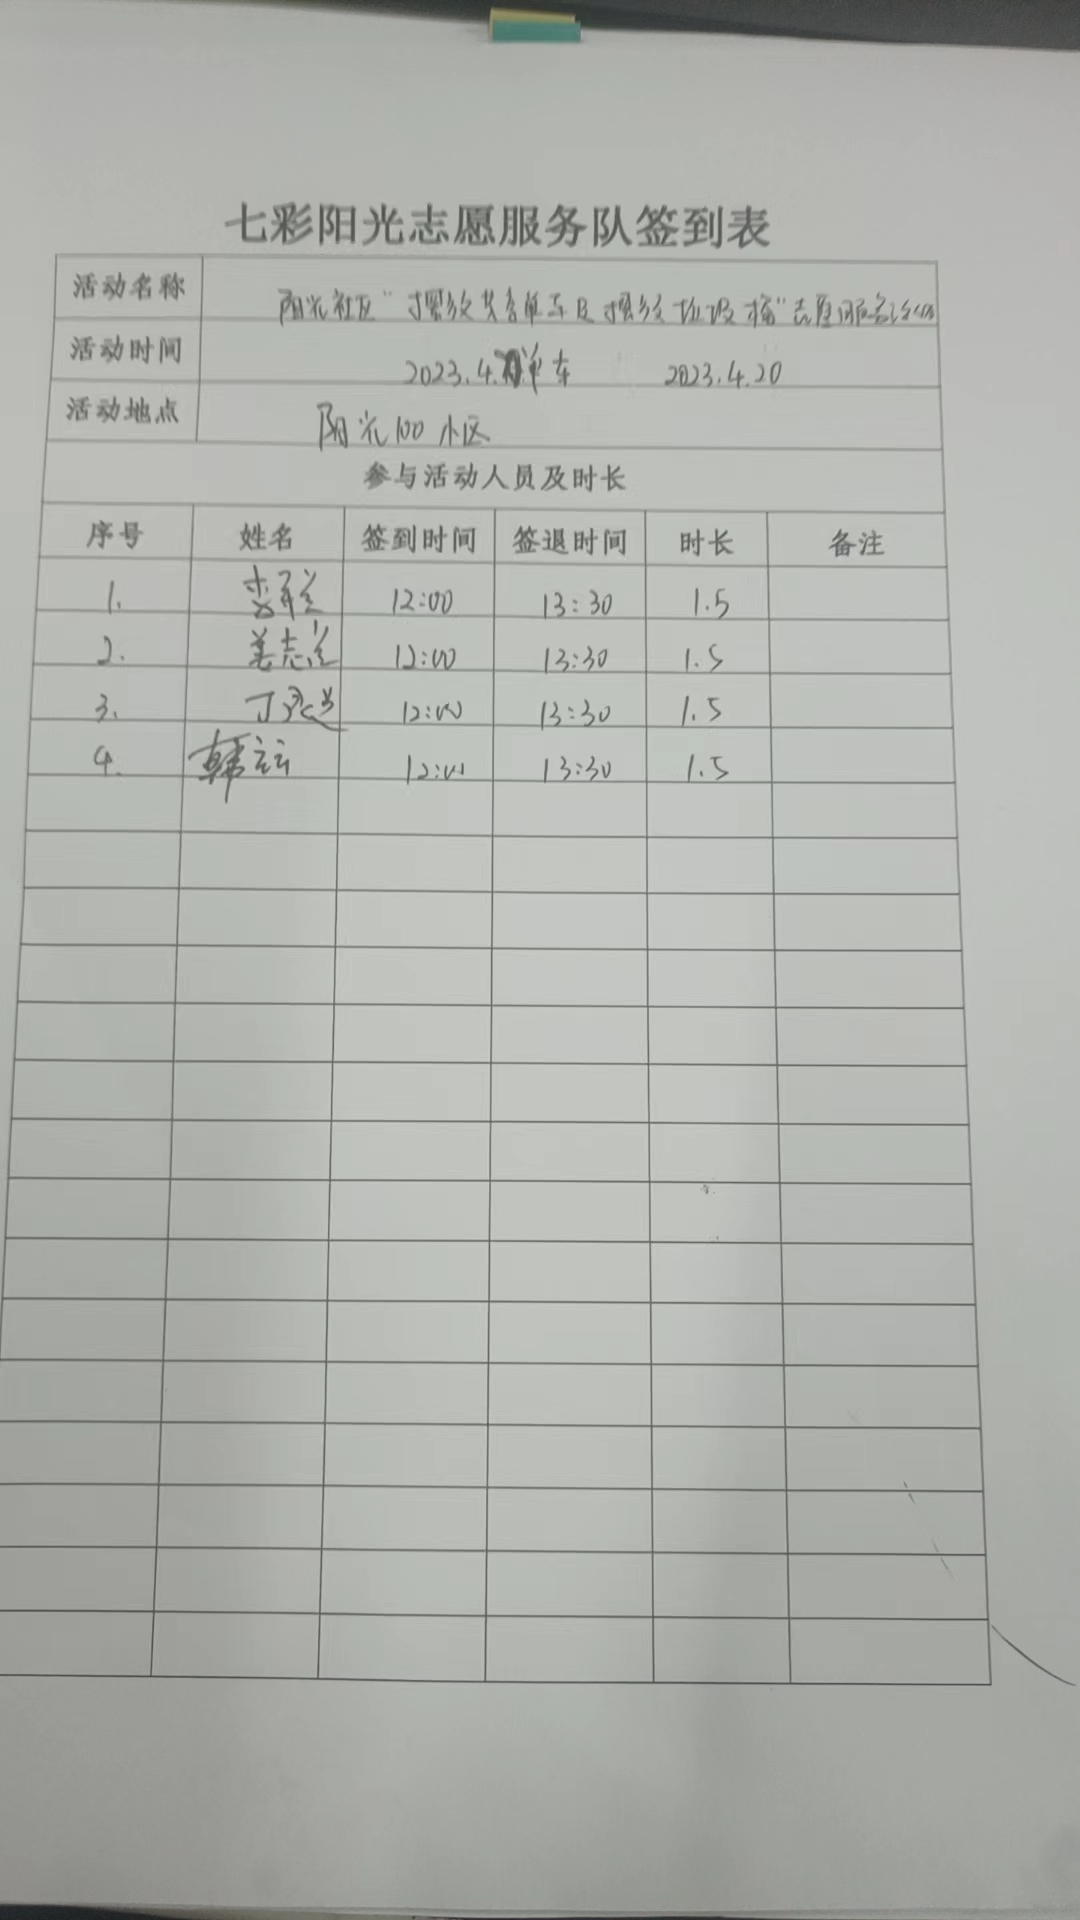 七彩阳光志愿服务队签到表
活动名称 阳光社区"摆放共享单车及摆放垃圾桶"志愿服务活动
活动时间 2023.4. 单车 2023.4.20
活动地点 阳光100小区
参与活动人员及时长
序号 姓名 签到时间 签退时间 时长 备注
1. 12:00 13:30 1.5
2. 姜志兰 12:00 13:30 1.5
3. 丁 12:00 13:30 1.5
4. 韩云 12:00 13:30 1.5